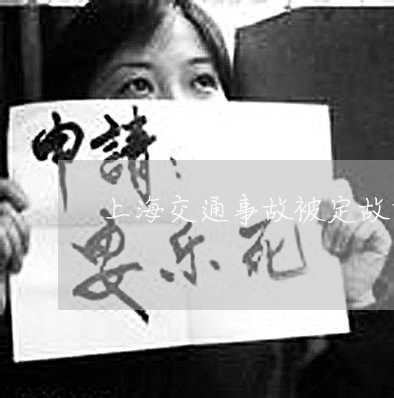 申請：
上海交通事故被定故
安乐死